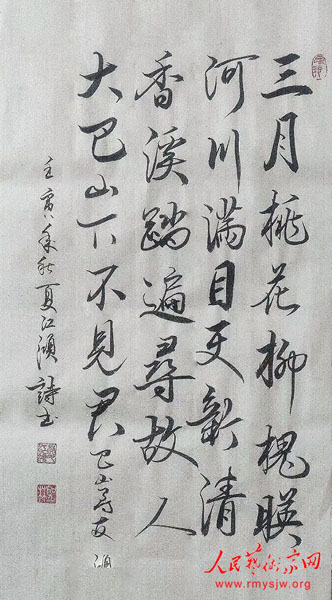 三月桃花柳槐暎
河川满目天新清
香溪踏遍寻故人
大巴山下不见君 巴山寻友
壬寅年秋夏江 诗书
人民艺术家网
www.rmysjw.org